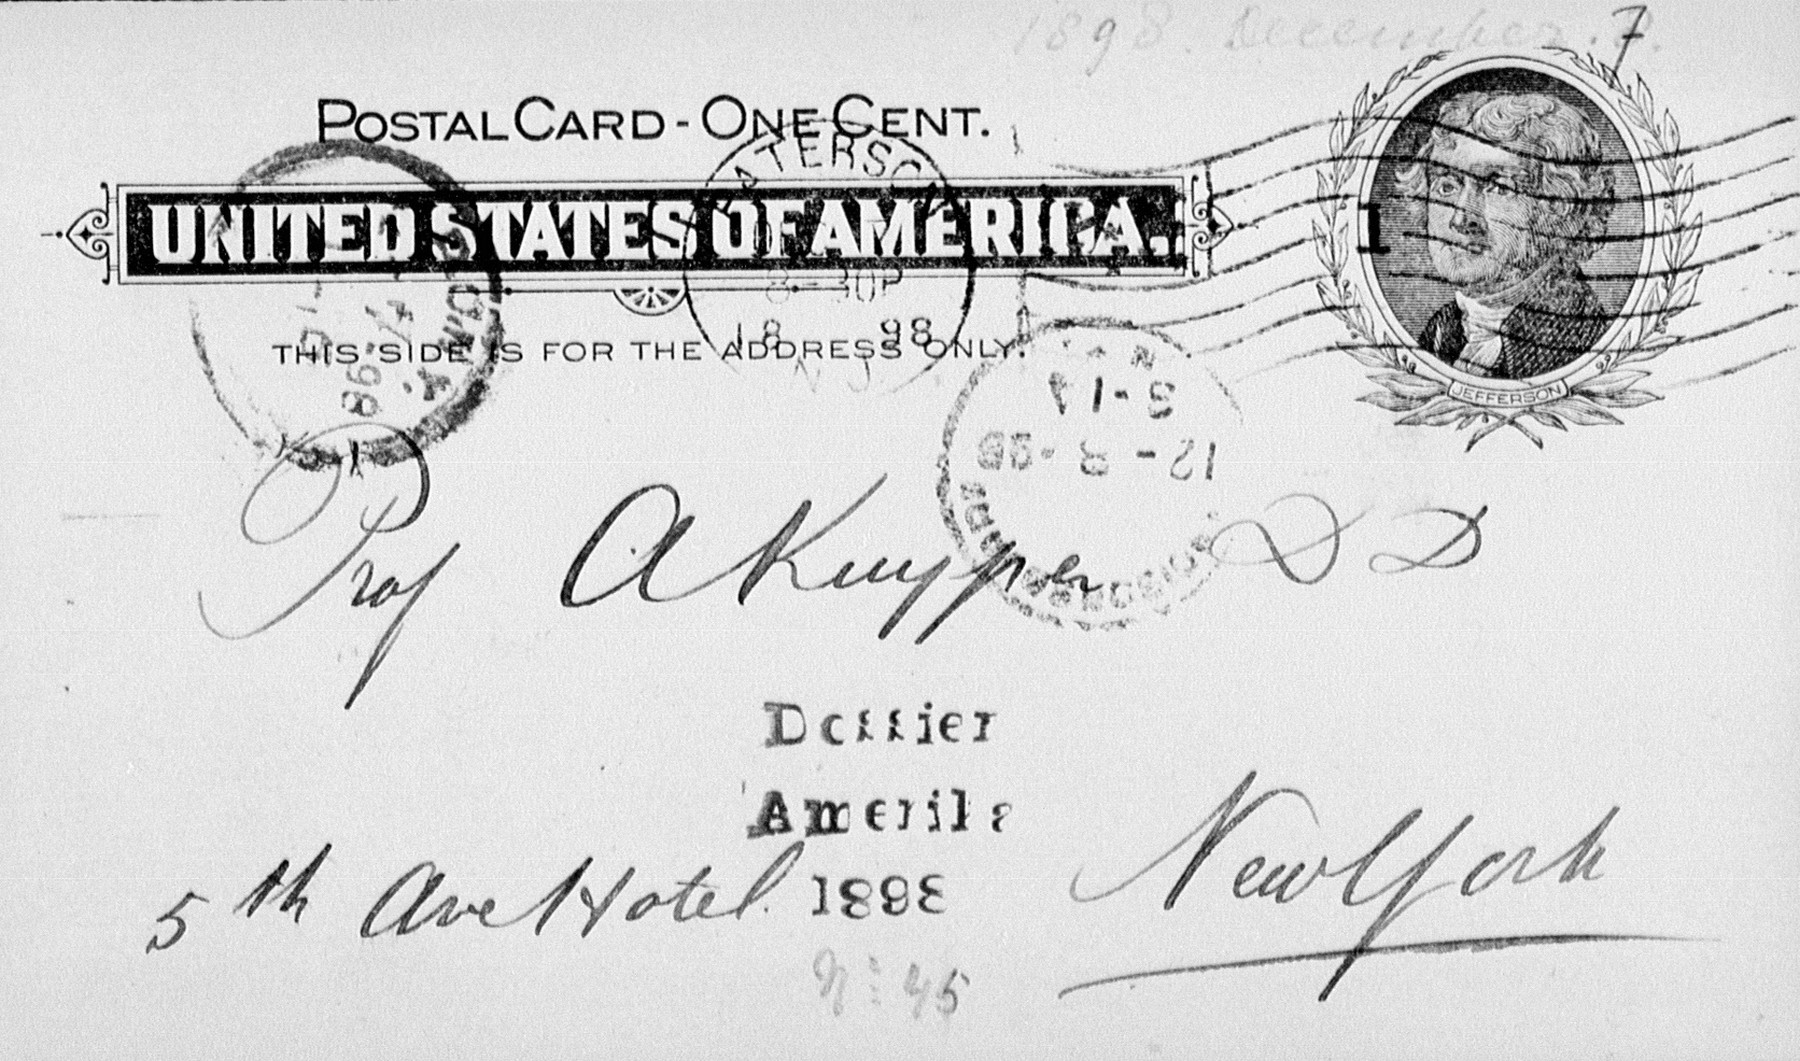 1898. December. 7.
POSTAL CARD - ONE CENT.
UNITED STATES OF AMERICA.
THIS SIDE IS FOR THE ADDRESS ONLY.
PATERSON
8-30P
18 98
N.J.
1
JEFFERSON
98
N.Y.
3-1A
12-8-98
Prof A Kuyper D D
Dossier
Amerika
1898
5th Ave Hotel.
New York
No 45